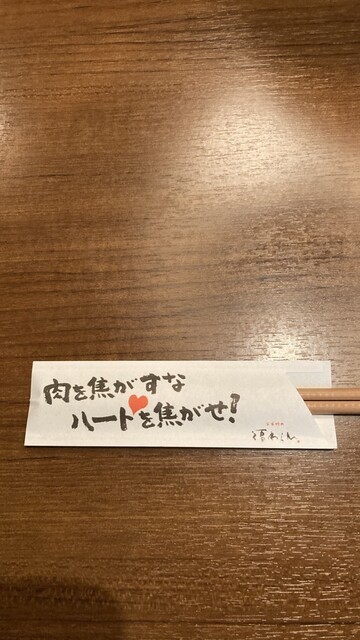 肉を焦がすな
ハートを焦がせ!